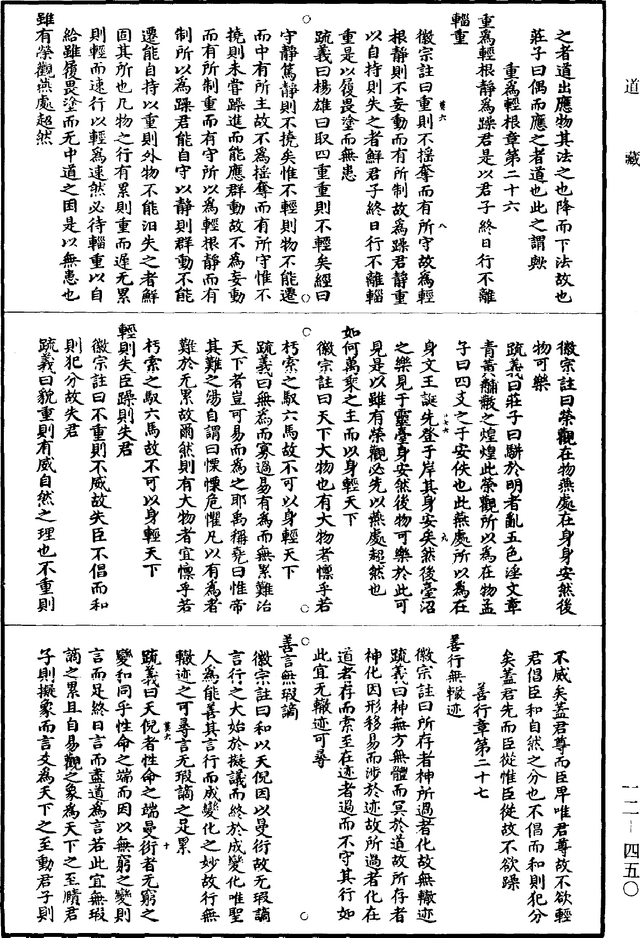 道藏
之者道出應物其法之也降而下法故也
莊子曰偶而應之者道也此之謂歟
重為輕根章第二十六
重為輕根靜為躁君是以君子終日行不離
輜重
徽宗註曰重則不搖奪而有所守故為輕
根靜則不妄動而有所制故為躁君靜重
以自持則失之者鮮君子終日行不離輜
重是以履畏塗而無患
疏義曰楊雄曰取四重重則不輕矣經曰
守靜篤靜則不撓矣惟不輕則物不能遷
而中有所主故不為搖奪而有所守惟不
撓則未嘗躁進而能應群動故不為妄動
而有所制重而有守所以為輕根靜而有
制所以為躁君能自守以靜則群動不能
遷能自持以重則外物不能汩失之者鮮
固其所也凡物之行有累則重而遲无累
則輕而速行以輕為速然必待輜重以自
給雖履畏塗而无中道之困是以無患也
雖有榮觀燕處超然
徽宗註曰榮觀在物燕處在身身安然後
物可樂
疏義曰莊子曰駢於明者亂五色淫文章
青黃黼黻之煌煌此榮觀所以為在物孟
子曰四支之于安佚也此燕處所以為在
身文王誕先登于岸其身安矣然後臺沼
之樂見于靈臺身安然後物可樂於此可
見是以雖有榮觀必先以燕處超然也
如何萬乘之主而以身輕天下
徽宗註曰天下大物也有大物者懍乎若
朽索之馭六馬故不可以身輕天下
疏義曰無為而寡過易有為而無累難治
天下者豈可易而為之耶禹稱堯曰惟帝
其難之湯自謂曰慄慄危懼凡以有為者
難於无累故爾然則有大物者宜懍乎若
朽索之馭六馬故不可以身輕天下
輕則失臣躁則失君
徽宗註曰不重則不威故失臣不倡而和
則犯分故失君
疏義曰貌重則有威自然之理也不重則
不威矣蓋君尊而臣卑唯君尊故不欲輕
君倡臣和自然之分也不倡而和則犯分
矣蓋君先而臣從惟臣從故不欲躁
善行章第二十七
善行無轍迹
徽宗註曰所存者神所過者化故無轍迹
疏義曰神無方無體而冥於道故所存者
神化因形移易而涉於迹故所過者化在
道者存而索至在迹者過而不守其行如
此宜无轍迹可尋
善言無瑕謫
徽宗註曰和以天倪因以曼衍故无瑕謫
言行之大始於擬議而終於成變化唯聖
人為能善其言行而成變化之妙故行無
轍迹之可尋言无瑕謫之足累
疏義曰天倪者性命之端曼衍者无窮之
變和同乎性命之端而因以無窮之變則
言而足終日言而盡道為言若此宜無瑕
謫之累且自易觀之象為天下之至賾君
子則擬象而言爻為天下之至動君子則
一二—四五〇